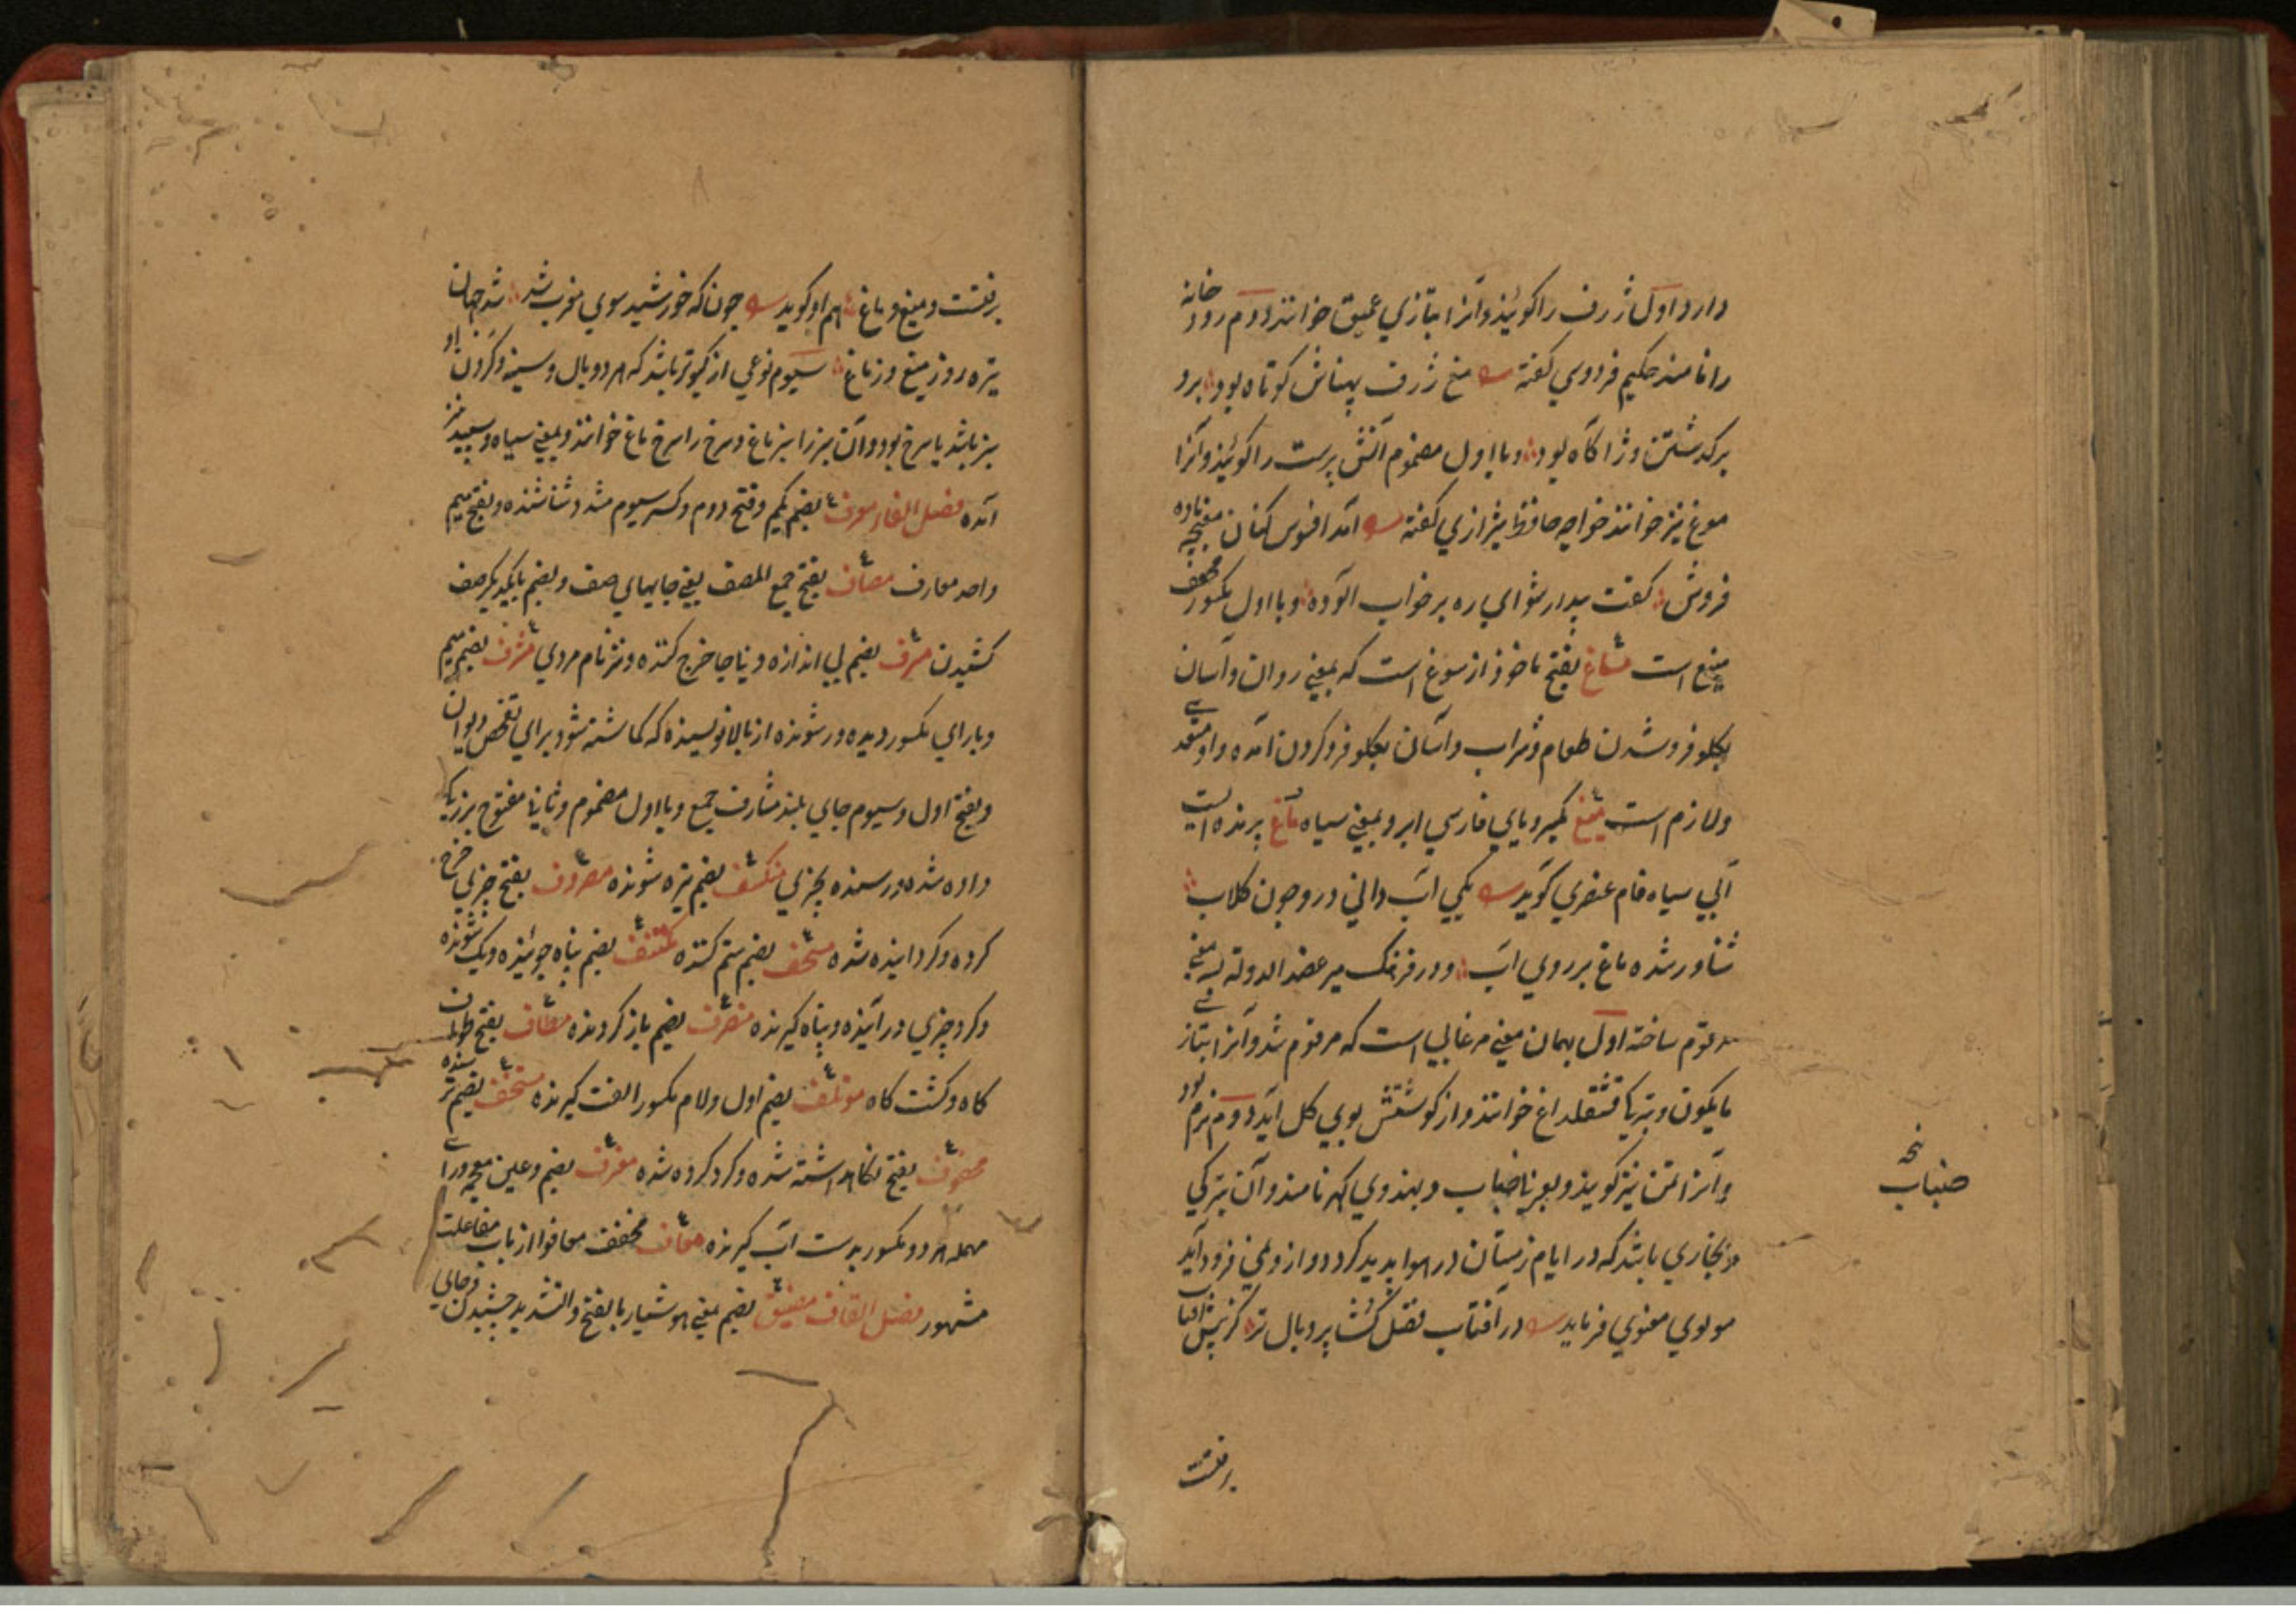 دارد اول ژرف را گویند و آنرا بتازی عمیق خوانند دوم رود خانه
را نامند حکیم فردوسی گفته مغ ژرف پهناش کوتاه بود برو
بر گذشتن وژاکاه بود و با اول مضموم آتش پرست را گویند و آنرا
موغ نیز خوانند خواجه حافظ شیرازی گفته آمد افسوس کنان مغبچه باده
فروش گفت بیدار شو ای ره رو خواب آلوده و با اول مکسور مخفف
میغ است مساغ بفتح ماخوذ از سوغ است که بمعنی روان و آسان
بگلو فرو شدن طعام و شراب و آسان بگلو فرو کردن آمده و او متعدی
و لازم است میغ بمیم و یای فارسی ابر و بمعنی سیاه ماغ پرنده ایست
آبی سیاه فام عنصری گوید یکی آب دانی درو چون گلاب
شناور شده ماغ بر روی آب و در فرهنگ میر عضد الدوله بسه معنی
مرقوم ساخته اول بهمان معنی مرغابی است که مرقوم شد و آنرا بتازی
مایکون و بترکی قشقلداغ خوانند و از گوشتش بوی گل آید دوم نزم بود
و آنرا تمن نیز گویند و بعربی ضباب و بهندوی کهر نامند و آن بترکی
و بخاری باشد که در ایام زمستان در هوا پدید گردد و از وی نمی فرود آید
مولوی معنوی فرماید در آفتاب فضل گشا پر و بال تر کز پیش آفتاب
برفتت
نخ
ضباب
برفتت و میغ و ماغ هم او گوید چون که خورشید سوی مغرب شد شد جهان
تیره روز میغ و ز ماغ سیوم نوعی از کبوتر باشد که هر دو بال و سینه و گردن او
سبز باشد یا سرخ بود و آن سبز را سبز ماغ و سرخ را سرخ ماغ خوانند و بمعنی سیاه و سپید نیز
آمده فصل الفاء معرف بضم یکم و فتح دوم و کسر سیوم مشدد شناسنده و بفتح میم
واحد معارف مصاف بفتح جمع المصف یعنی جایهای صف و بضم با یکدیگر صف
کشیدن مسرف بضم بی اندازه و نا جا خرج کننده و نیز نام مردی مشرف بضم میم
و با رای مکسور دیده ور شونده از بالا نویسنده که گماشته شود برای تفحص دیوان
و بفتح اول و سیوم جای بلند مشارف جمع و با اول مضموم و ثانی مفتوح بزرگی
داده شده و رسنده بچیزی منکسف بضم تیره شونده مصروف بفتح چیزی خرج
کرده و گردانیده شده متعسف بضم ستم کننده مکتنف بضم پناه جوینده و یک شونده
و گرد چیزی در آینده و پناه گیرنده منصرف بضم باز گردنده مطاف بفتح طوف
گاه و گشت گاه موتلف بضم اول و لام مکسور الفت گیرنده مستخف بضم
محفوف بفتح نگاه داشته شده و گرد کرده شده مغترف بضم و غین معجمه و رای
مهمله هر دو مکسور بدست آب گیرنده معاف مخفف معافوا از باب مفاعلت
مشهور فصل القاف مفیق بضم بمعنی هوشیار بالفتح و التشدید چشیدن و جای